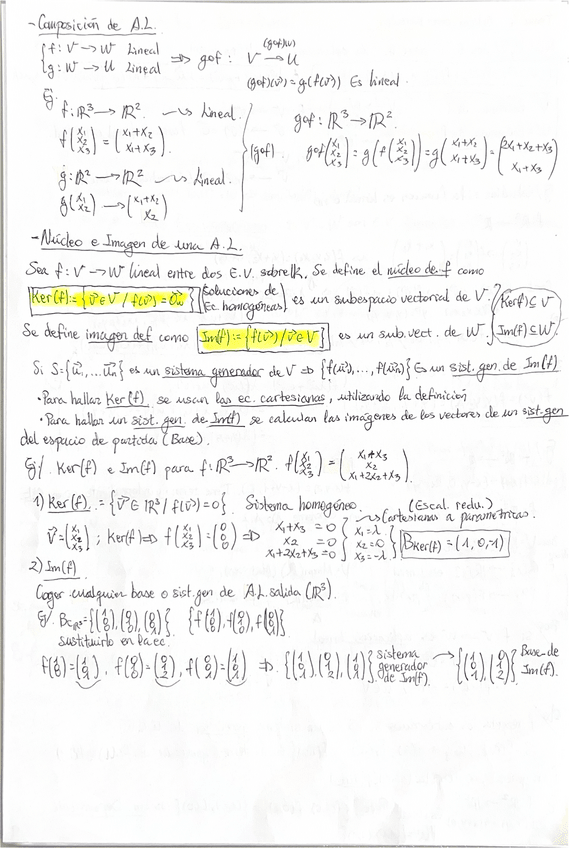 - Composición de A.L.
{ f: V → W Lineal
g: W → U Lineal ⇒ gof: V →(gof)(v) U
(gof)(v⃗) = g(f(v⃗)) Es lineal.
Ej
f: ℝ³ → ℝ² ⇝ Lineal.
f(x₁ x₂ x₃) = (x₁+x₂ x₁+x₃).
g: ℝ² → ℝ² ⇝ Lineal.
g(x₁ x₂) → (x₁+x₂ x₂)
(gof)
gof: ℝ³ → ℝ².
gof(x₁ x₂ x₃) = g(f(x₁ x₂ x₃)) = g(x₁+x₂ x₁+x₃) = (2x₁+x₂+x₃ x₁+x₃)
- Núcleo e Imagen de una A.L.
Sea f: V → W lineal entre dos E.V. sobre lk, Se define el núcleo de f como
Ker(f):={v⃗∈V / f(v⃗) = 0⃗w} (soluciones de Ec. homogéneas) es un subespacio vectorial de V. (Ker(f) ⊆ V
Se define imagen de f como Im(f):={f(v⃗) / v⃗∈V} es un sub.vect. de W. Im(f) ⊆ W.)
Si S={u⃗₁,...u⃗n} es un sistema generador de V ⇒ {f(u⃗₁),..., f(u⃗n)} Es un sist. gen. de Im(f)
· Para hallar Ker(f) se usan las ec. cartesianas, utilizando la definición
· Para hallar un sist. gen. de Im(f) se calculan las imágenes de los vectores de un sist. gen
del espacio de partida (Base).
Ej/. Ker(f) e Im(f) para f: ℝ³ → ℝ². f(x₁ x₂ x₃) = (x₁+x₃ x₂ x₁+2x₂+x₃).
1) Ker(f). = {v⃗ ∈ ℝ³ / f(v⃗) = 0}. Sistema homogéneo. (Escal. redu.)
⇝ Cartesianas a paramétricas.
v⃗ = (x₁ x₂ x₃) ; Ker(f) ⇒ f(x₁ x₂ x₃) = (0 0 0) ⇒ x₁+x₃ = 0 x₂ = 0 x₁+2x₂+x₃ = 0 } x₁ = λ x₂ = 0 x₃ = -λ } BKer(f) = (1, 0, -1)
2) Im(f)
Coger cualquier base o sist. gen de A.L. salida (ℝ³).
Ej/. Bcℝ³ = {(1 0 0), (0 1 0), (0 0 1)} {f(1 0 0), f(0 1 0), f(0 0 1)}
sustituirlo en la ec.
f(1 0 0) = (1 0 1), f(0 1 0) = (0 1 2), f(0 0 1) = (1 0 1) ⇒ {(1 0 1), (0 1 2), (1 0 1)} sistema generador de Im(f). → {(1 0 1), (0 1 2)} Base de Im(f).